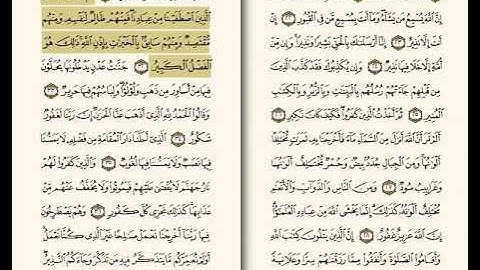 إِنَّ ٱللَّهَ يُسْمِعُ مَن يَشَآءُ وَمَآ أَنتَ بِمُسْمِعٍ مَّن فِى ٱلْقُبُورِ ٢٢ إِنْ
أَنتَ إِلَّا نَذِيرٌ ٢٣ إِنَّآ أَرْسَلْنَـٰكَ بِٱلْحَقِّ بَشِيرًا وَنَذِيرًا وَإِن مِّنْ
أُمَّةٍ إِلَّا خَلَا فِيهَا نَذِيرٌ ٢٤ وَإِن يُكَذِّبُوكَ فَقَدْ كَذَّبَ ٱلَّذِينَ
مِن قَبْلِهِمْ جَآءَتْهُمْ رُسُلُهُم بِٱلْبَيِّنَـٰتِ وَبِٱلزُّبُرِ وَبِٱلْكِتَـٰبِ
ٱلْمُنِيرِ ٢٥ ثُمَّ أَخَذْتُ ٱلَّذِينَ كَفَرُوا۟ فَكَيْفَ كَانَ نَكِيرِ ٢٦
أَلَمْ تَرَ أَنَّ ٱللَّهَ أَنزَلَ مِنَ ٱلسَّمَآءِ مَآءً فَأَخْرَجْنَا بِهِۦ ثَمَرَٰتٍ مُّخْتَلِفًا
أَلْوَٰنُهَا وَمِنَ ٱلْجِبَالِ جُدَدٌۢ بِيضٌ وَحُمْرٌ مُّخْتَلِفٌ أَلْوَٰنُهَا
وَغَرَابِيبُ سُودٌ ٢٧ وَمِنَ ٱلنَّاسِ وَٱلدَّوَآبِّ وَٱلْأَنْعَـٰمِ
مُخْتَلِفٌ أَلْوَٰنُهُۥ كَذَٰلِكَ إِنَّمَا يَخْشَى ٱللَّهَ مِنْ عِبَادِهِ ٱلْعُلَمَـٰٓؤُا۟
إِنَّ ٱللَّهَ عَزِيزٌ غَفُورٌ ٢٨ إِنَّ ٱلَّذِينَ يَتْلُونَ كِتَـٰبَ ٱللَّهِ
وَأَقَامُوا۟ ٱلصَّلَوٰةَ وَأَنفَقُوا۟ مِمَّا رَزَقْنَـٰهُمْ سِرًّا وَعَلَانِيَةً
ٱلَّذِينَ ٱصْطَفَيْنَا مِنْ عِبَادِنَا فَمِنْهُمْ ظَالِمٌ لِّنَفْسِهِۦ وَمِنْهُم
مُّقْتَصِدٌ وَمِنْهُمْ سَابِقٌۢ بِٱلْخَيْرَٰتِ بِإِذْنِ ٱللَّهِ ذَٰلِكَ هُوَ
ٱلْفَضْلُ ٱلْكَبِيرُ ٣٢ جَنَّـٰتُ عَدْنٍ يَدْخُلُونَهَا يُحَلَّوْنَ
فِيهَا مِنْ أَسَاوِرَ مِن ذَهَبٍ وَلُؤْلُؤًا وَلِبَاسُهُمْ فِيهَا حَرِيرٌ ٣٣
وَقَالُوا۟ ٱلْحَمْدُ لِلَّهِ ٱلَّذِىٓ أَذْهَبَ عَنَّا ٱلْحَزَنَ إِنَّ رَبَّنَا لَغَفُورٌ
شَكُورٌ ٣٤ ٱلَّذِىٓ أَحَلَّنَا دَارَ ٱلْمُقَامَةِ مِن فَضْلِهِۦ لَا يَمَسُّنَا
فِيهَا نَصَبٌ وَلَا يَمَسُّنَا فِيهَا لُغُوبٌ ٣٥ وَٱلَّذِينَ كَفَرُوا۟ لَهُمْ
نَارُ جَهَنَّمَ لَا يُقْضَىٰ عَلَيْهِمْ فَيَمُوتُوا۟ وَلَا يُخَفَّفُ عَنْهُم مِّنْ
عَذَابِهَا كَذَٰلِكَ نَجْزِى كُلَّ كَفُورٍ ٣٦ وَهُمْ يَصْطَرِخُونَ
فِيهَا رَبَّنَآ أَخْرِجْنَا نَعْمَلْ صَـٰلِحًا غَيْرَ ٱلَّذِى كُنَّا نَعْمَلُ
أَوَلَمْ نُعَمِّرْكُم مَّا يَتَذَكَّرُ فِيهِ مَن تَذَكَّرَ وَجَآءَكُمُ ٱلنَّذِيرُ